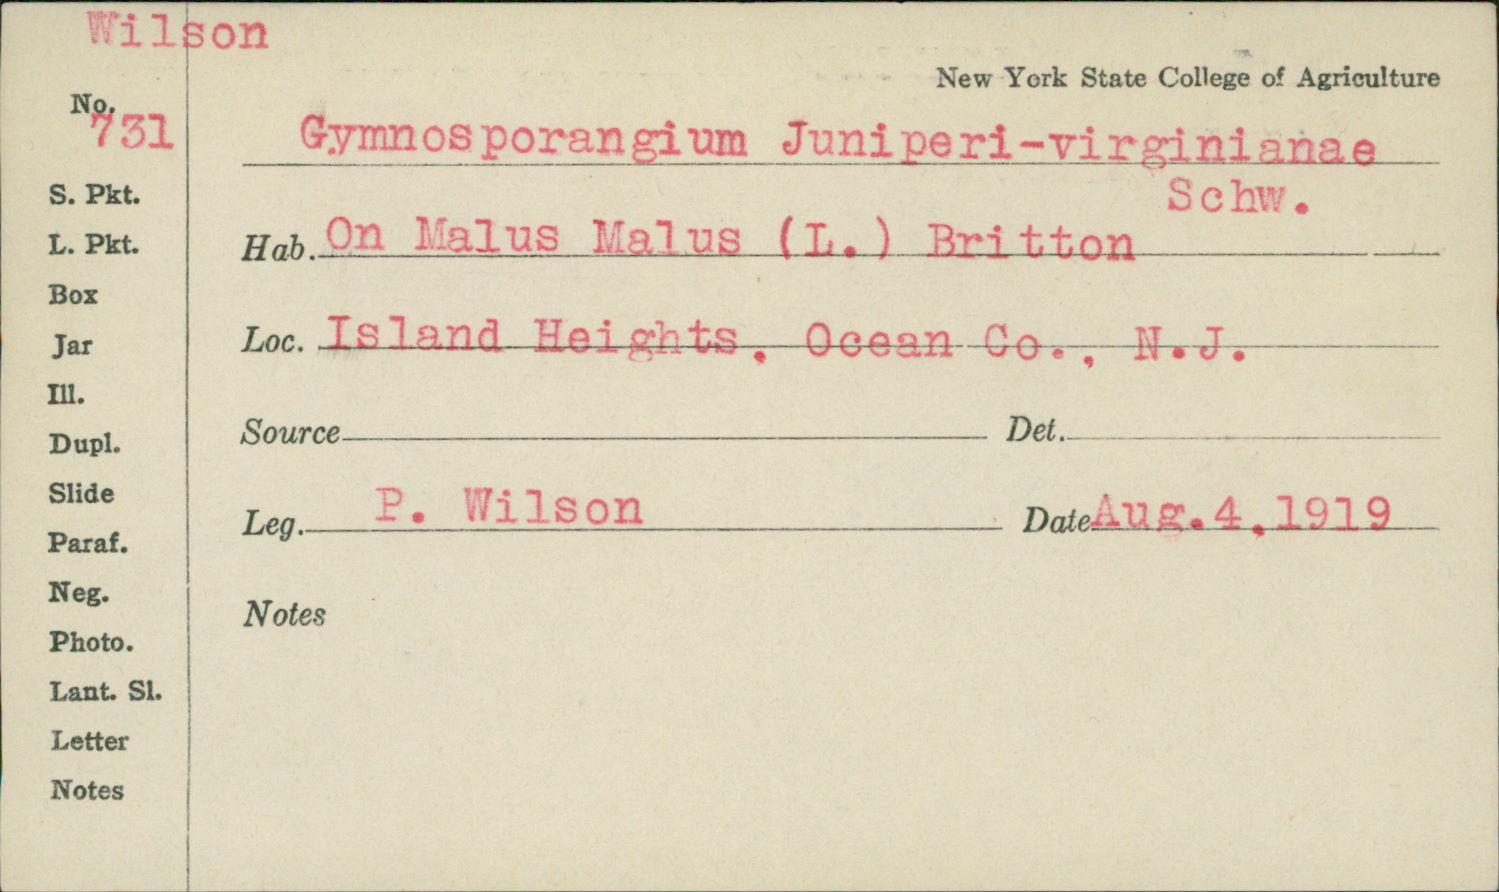 Wilson
New York State College of Agriculture
No. 731
Gymnosporangium Juniperi-virginianae
Schw.
S. Pkt.
L. Pkt.
Box
Jar
Ill.
Dupl.
Slide
Paraf.
Neg.
Photo.
Lant. Sl.
Letter
Notes
Hab. On Malus Malus (L.) Britton
Loc. Island Heights, Ocean Co., N.J.
Source Det.
Leg. P. Wilson Date Aug.4,1919
Notes